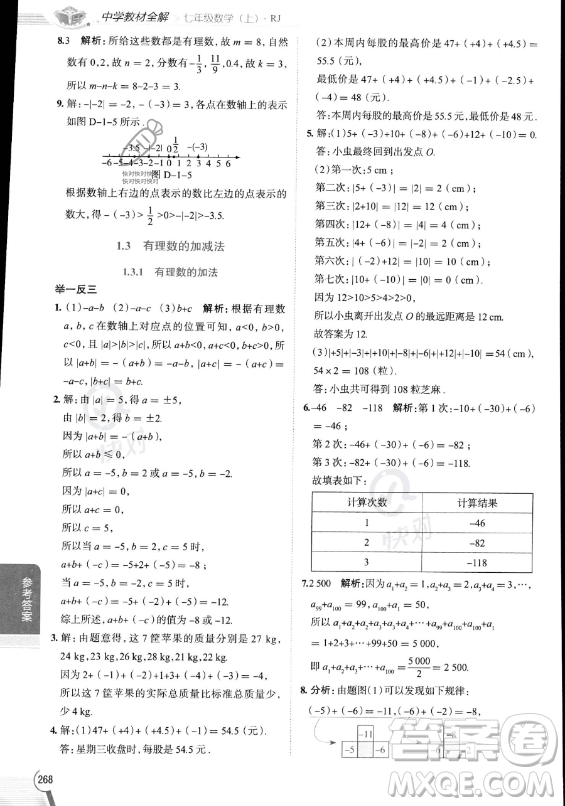 中学教材全解 七年级数学（上）·RJ
8.3 解析：所给这些数都是有理数，故 m = 8，自然
数有 0，2，故 n = 2，分数有 -1/3，11/9，0.4，故 k = 3，
所以 m-n-k = 8-2-3 = 3.
9. 解：-|-2| = -2，-（-3）= 3，各点在数轴上的表示
如图 D-1-5 所示.
-3.5 -|-2| 0 1/2 -(-3)
-6 -5 -4 -3 -2 -1 0 1 2 3 4 5 6
图 D-1-5
根据数轴上右边的点表示的数比左边的点表示的
数大，得 -（-3）> 1/2 >0>-|-2|>-3.5.
1.3 有理数的加减法
1.3.1 有理数的加法
举一反三
1.（1）-a-b （2）-a-b （3）b+c 解析：根据有理数
a，b，c 在数轴上对应点的位置可知，a<0，b>0，
c<0，且 |a|>|b|>|c|，所以 a+b<0，a+c<0，b+c>0，所
以 |a+b| = -（a+b），|a+c| = -a-c，|b+c| = b+c.
2. 解：由 |a| = 5，所以 a = ±5，
由 |b| = 2，得 b = ±2.
因为 |a+b| = -（a+b），
所以 a+b ≤ 0，
所以 a = -5，b = 2 或 a = -5，b = -2.
因为 c 的相反数为 -5，
所以 c = 5.
所以当 a = -5，b = 2，c = 5 时，
a+b+（-c）= -5+2+（-5）= -8；
当 a = -5，b = -2，c = 5 时，
a+b+（-c）= -5+（-2）+（-5）= -12.
综上所述，a+b+（-c）的值为 -8 或 -12.
3. 解：由题意得，这 7 筐苹果的质量分别是 27 kg，
24 kg，23 kg，26 kg，21 kg，23 kg，24 kg.
因为 2+（-1）+（-2）+1+（-4）+（-2）+（-1）= -7，
25×7+（-7）= 168（kg），
所以这 7 筐苹果的实际总质量比标准总质量
少 7 kg.
4. 解：（1）47+（+4）+（+4.5）+（-1）= 54.5（元）.
答：星期三收盘时，每股是 54.5 元.
268
参考答案
（2）本周内每股的最高价是 47+（+4）+（+4.5）
= 55.5（元），
47+（+4）+（+4.5）+（-1）+（-2.5）+
（-4）= 48（元）.
答：本周内最高价是 55.5 元，最低价是 48 元.
5. 解：（1）5+（-3）+10+（-8）+（-6）+12+（-10）= 0.
答：小虫最终回到出发点 O.
（2）第一次：5 cm；
第二次：|5+（-3）| = |2| = 2（cm）；
第三次：|2+10| = |12| = 12（cm）；
第四次：|12+（-8）| = |4| = 4（cm）；
第五次：|4+（-6）| = |-2| = 2（cm）；
第六次：|-2+12| = |10| = 10（cm）；
第七次：|10+（-10）| = 0（cm）.
因为 12>10>5>4>2>0，
所以小虫离开出发点 O 的最远距离是 12 cm.
故答案为 12.
（3）|+5|+|-3|+|+10|+|-8|+|-6|+|+12|+|-10| = 54（cm），
54 × 2 = 108（粒）.
答：小虫共可得到 108 粒芝麻.
6. -46 -82 -118 解析：第 1 次：-10+（-30）+（-6）
= -46；
第 2 次：-46+（-30）+（-6）= -82；
第 3 次：-82+（-30）+（-6）= -118.
故填表如下：
计算次数 计算结果
1 -46
2 -82
3 -118
7. 2 500 解析：因为 a₁+a₂ = 1，a₂+a₃ = 2，…，
a₉₉+a₁₀₀ = 99，a₁₀₀+a₁ = 100，
所以 a₁+a₂+a₂+a₃+a₃+a₄+…+a₉₉+a₁₀₀+a₁₀₀+a₁
= 1+2+3+…+99+100 = 5 050，
8. 分析：由题图（1）可以发现如下规律：
（-5）+（-6）= -11，（-6）+（-2）= -8，
-11
-5 -6
答案圈
MXQE.COM
快对